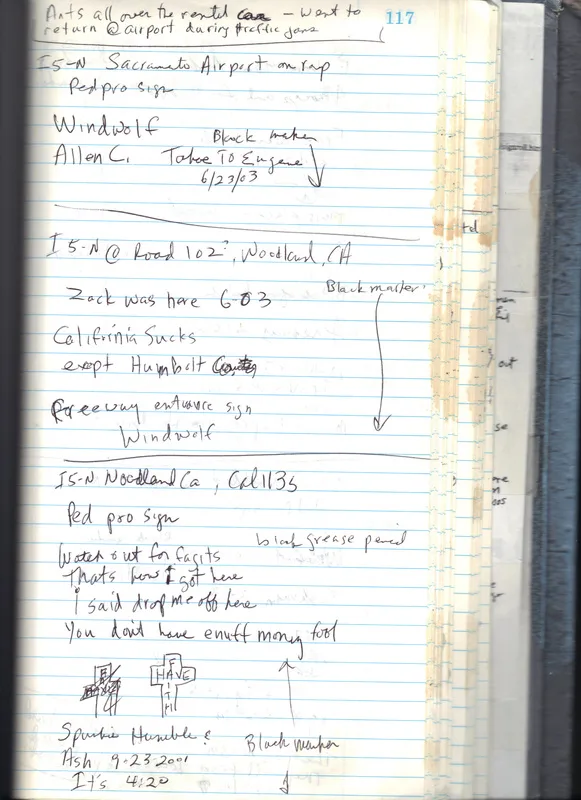 117
Ants all over the rental car – Went to
return @ airport during traffic jams
I5-N Sacramato Airport on rmp
Ped pro sign
Windwolf
Black maker
Allen C. Tahoe To Eugene
6/23/03
I5-N @ Road 102?, Woodland, CA
Black marker
Zack was here 6-03
Califrinia Sucks
exept Humbolt
Freeway entrance sign
Windwolf
I5-N Woodland Ca, Cal 113s
Ped pro sign
black grease pencil
Watch out for fagits
Thats how I got here
i said drop me off here
You don't have enuff money fool
FAITH
HAVE
Spunkie Humble &
Black marker
Ash 9-23-2001
It's 4:20
td
out
se